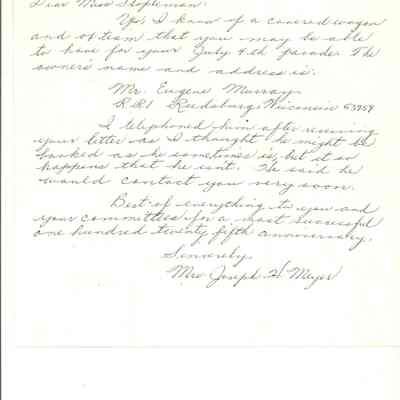 Dear Miss Stopleman:
Yes, I know of a covered wagon
and ox team that you may be able
to have for your July 4th parade. The
owner's name and address is:
Mr. Eugene Murray
R.R.1 Reedsburg, Wisconsin 53959
I telephoned him after receiving
your letter as I thought he might be
booked as he sometimes is, but it so
happens that he isn't. He said he
would contact you very soon.
Best of everything to you and
your committees for a most successful
one hundred twenty fifth anniversary.
Sincerely,
Mrs Joseph H Meyer